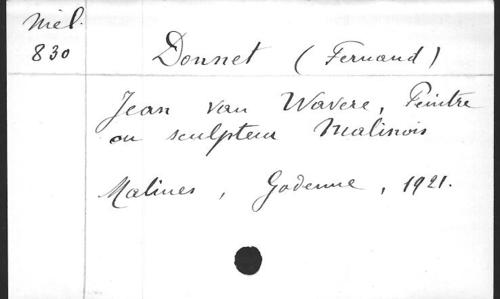 Mél.
830
Donnet (Fernand)
Jean van Wavere, Peintre
ou sculpteur Malinois
Malines, Godenne, 1921.